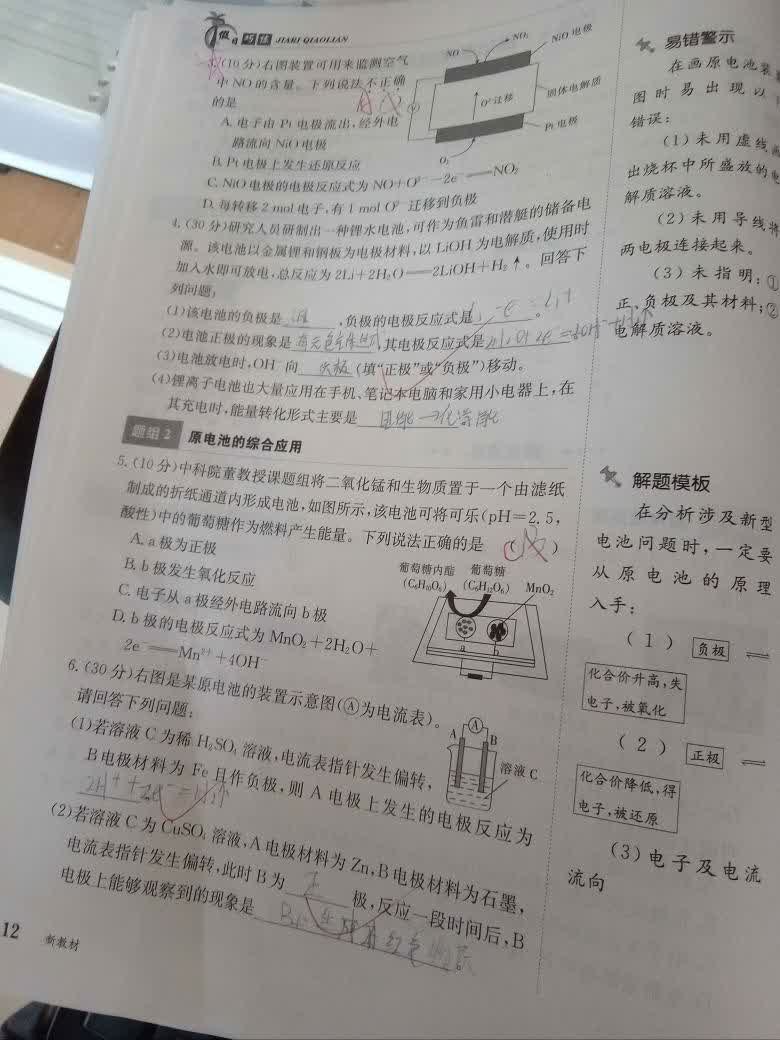 假日巧练 JIARI QIAOLIAN
(10分)右图装置可用来监测空气
中NO的含量。下列说法不正确
的是
A. 电子由Pt电极流出,经外电
路流向NiO电极
B. Pt电极上发生还原反应
C. NiO电极的电极反应式为NO+O²⁻-2e⁻══NO₂
D. 每转移2 mol电子,有1 mol O²⁻迁移到负极
NO
NO₂
NiO电极
固体电解质
O²⁻迁移
Pt电极
O₂
4. (30分)研究人员研制出一种锂水电池,可作为鱼雷和潜艇的储备电
源。该电池以金属锂和钢板为电极材料,以LiOH为电解质,使用时
加入水即可放电,总反应为2Li+2H₂O══2LiOH+H₂↑。回答下
列问题:
(1)该电池的负极是 锂 ,负极的电极反应式是 -e⁻=Li⁺ 。
(2)电池正极的现象是 有无色气体 ,其电极反应式是
(3)电池放电时,OH⁻向 负极 (填“正极”或“负极”)移动。
(4)锂离子电池也大量应用在手机、笔记本电脑和家用小电器上,在
其充电时,能量转化形式主要是 电能→化学能
题组2 原电池的综合应用
5. (10分)中科院董教授课题组将二氧化锰和生物质置于一个由滤纸
制成的折纸通道内形成电池,如图所示,该电池可将可乐(pH=2.5,
酸性)中的葡萄糖作为燃料产生能量。下列说法正确的是 ( )
A. a极为正极
B. b极发生氧化反应
C. 电子从a极经外电路流向b极
D. b极的电极反应式为MnO₂+2H₂O+
2e⁻══Mn²⁺+4OH⁻
葡萄糖内酯 葡萄糖
(C₆H₁₀O₆) (C₆H₁₂O₆) MnO₂
a b
6. (30分)右图是某原电池的装置示意图(Ⓐ为电流表)。
请回答下列问题:
(1)若溶液C为稀H₂SO₄溶液,电流表指针发生偏转,
B电极材料为Fe且作负极,则A电极上发生的电极反应为
2H⁺+2e⁻=H₂↑
(2)若溶液C为CuSO₄溶液,A电极材料为Zn,B电极材料为石墨,
电流表指针发生偏转,此时B为 正 极,反应一段时间后,B
电极上能够观察到的现象是
A
A B
溶液C
12 新教材
易错警示
在画原电池装
图时易出现以
错误:
(1)未用虚线画
出烧杯中所盛放的电
解质溶液。
(2)未用导线将
两电极连接起来。
(3)未指明:①
正、负极及其材料;②
电解质溶液。
解题模板
在分析涉及新型
电池问题时,一定要
从原电池的原理
入手:
(1) 负极 ══
化合价升高,失
电子,被氧化
(2) 正极 ══
化合价降低,得
电子,被还原
(3)电子及电流
流向